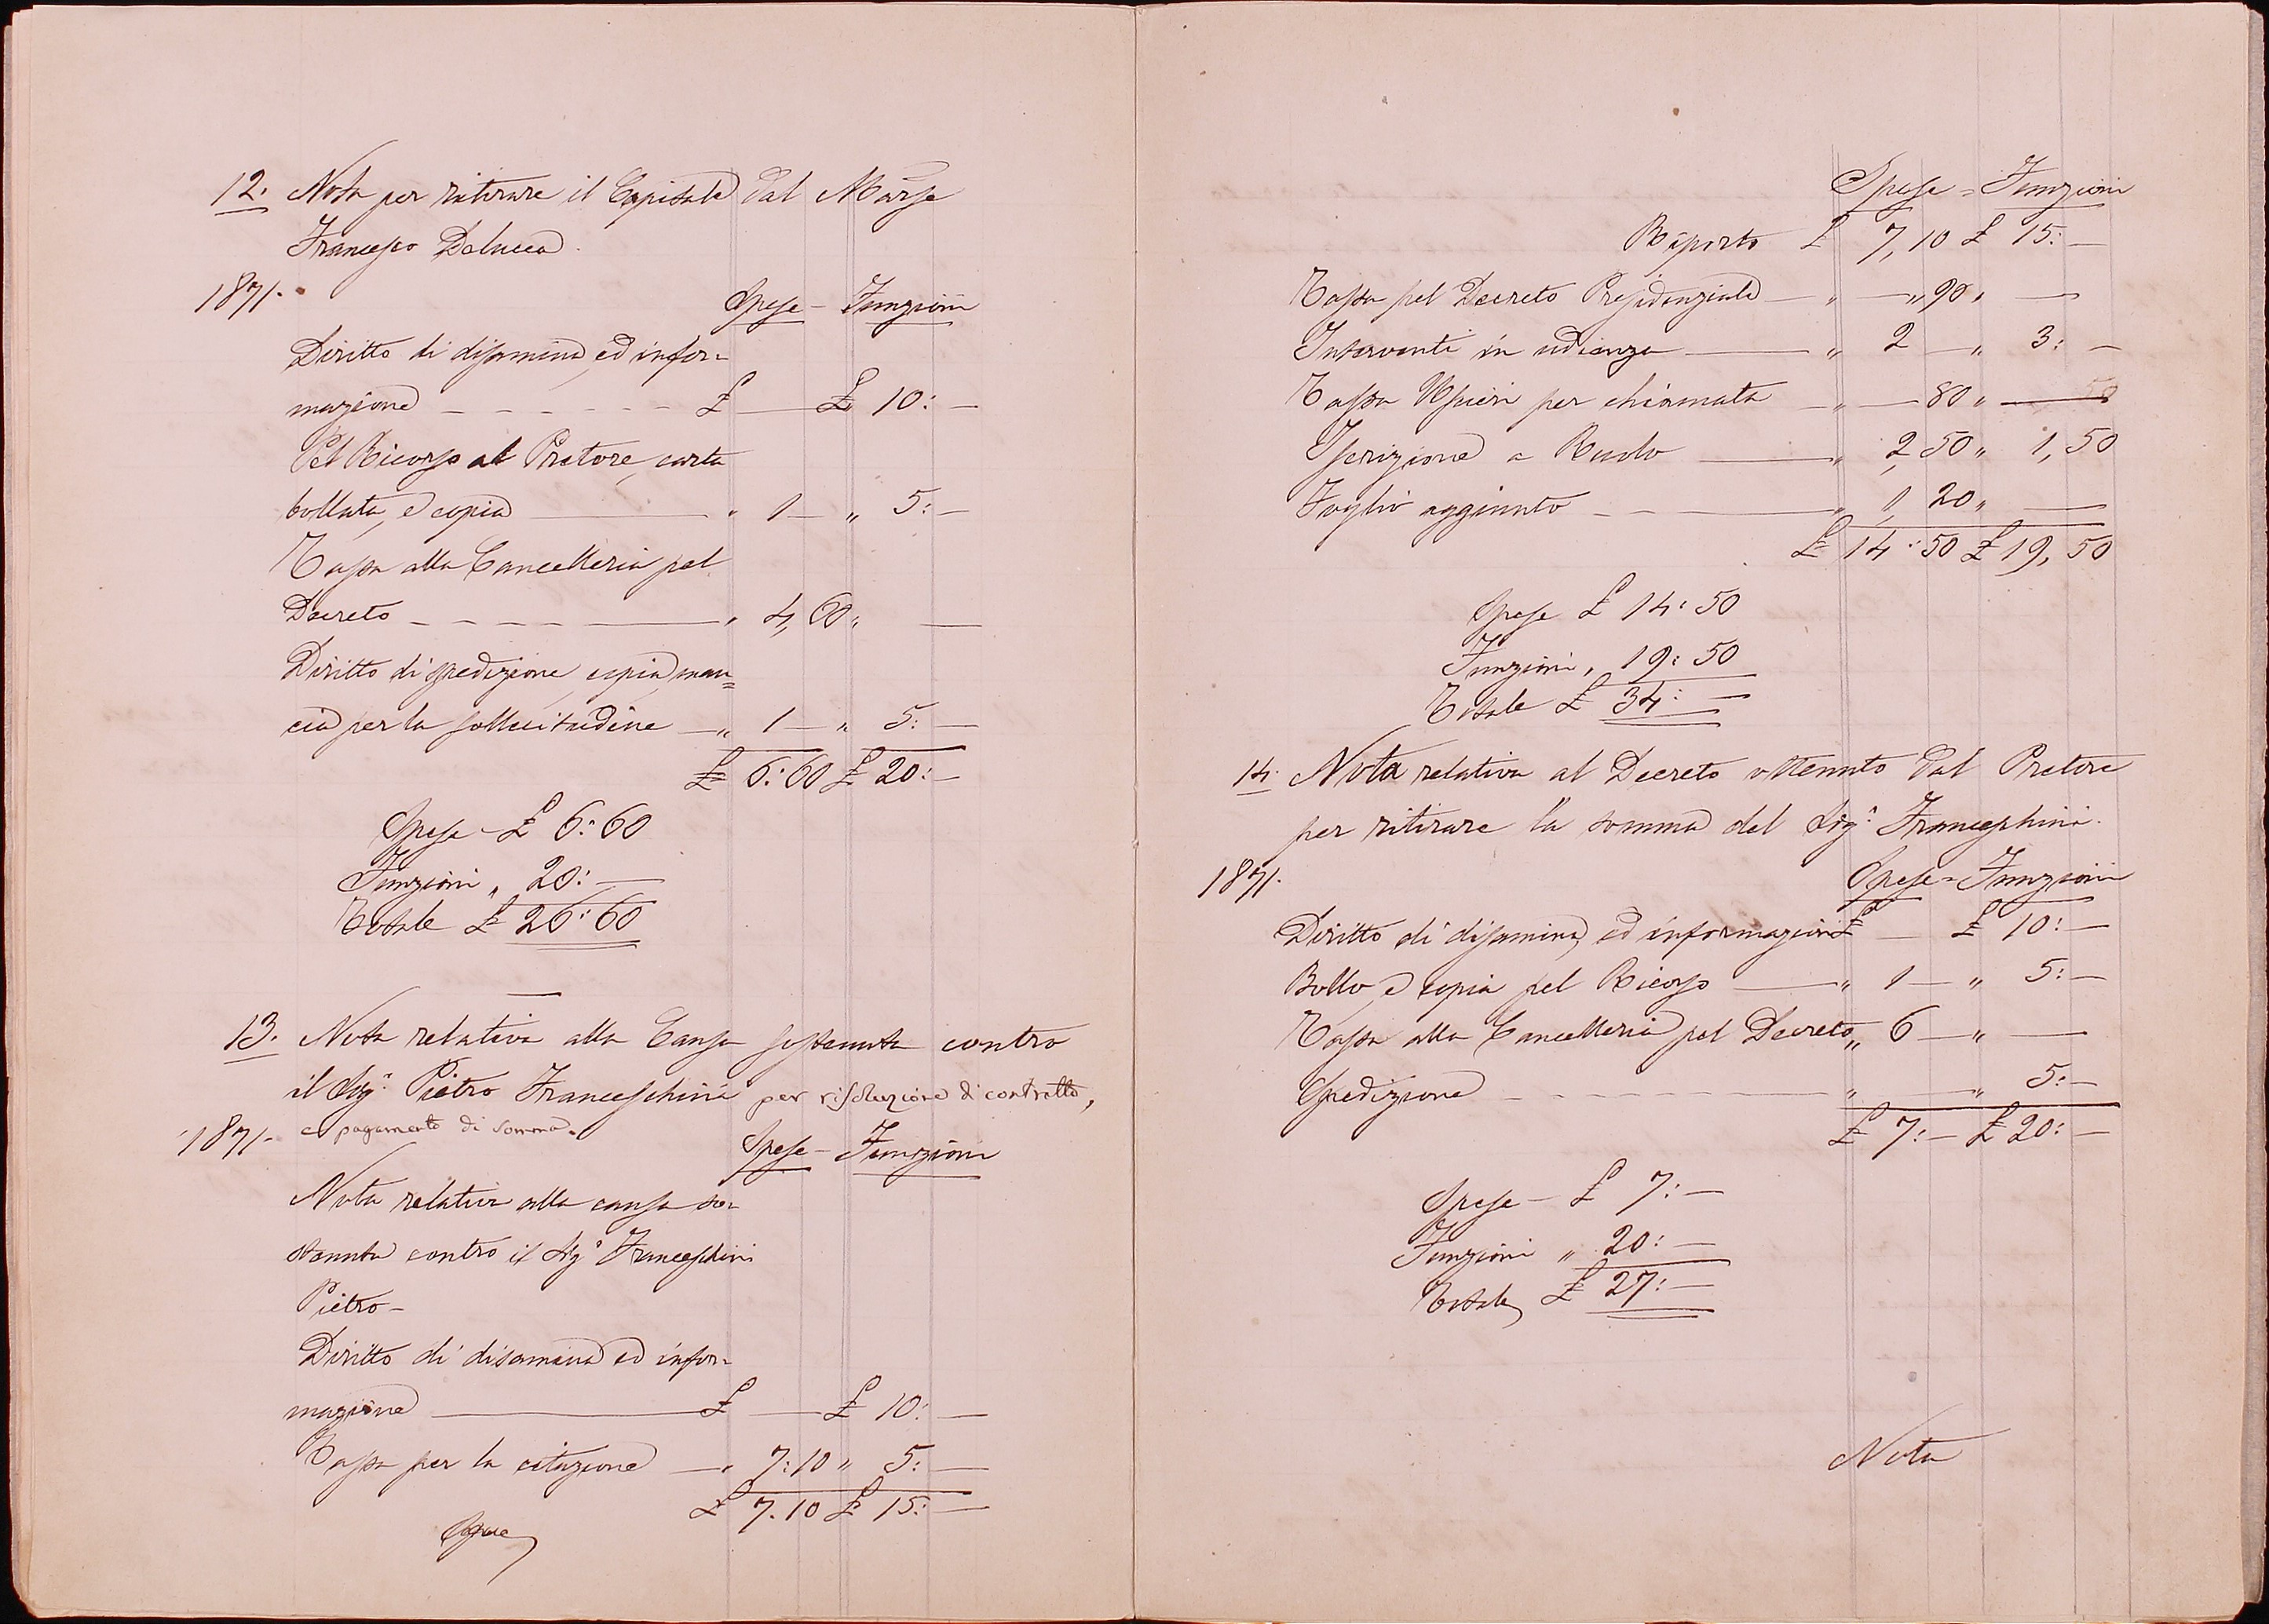 12. Nota per ritirare il Capitale dal Marse
Francesco Delucca.
1871. Spese - Funzioni
Diritto di disamina, ed infor=
mazione - - - - - - £ — £ 10: —
Pel Ricorso al Pretore, carta
bollata, e copia — " 1 — " 5: —
Tassa alla Cancelleria pel
Decreto - - - - — " 4,60 " —
Diritto di spedizione copia, man=
cia per la sollecitudine — " 1 — " 5: —
£ 6:60 £ 20: —
Spese - £ 6:60
Funzioni " 20: —
Totale £ 26:60
13. Nota relativa alla Causa sostenuta contro
il Sigr. Pietro Franceschini per risoluzione di contratto,
e pagamento di somma.
1871- Spese - Funzioni
Nota relativa alla causa so=
stenuta contro il Sigr. Franceschini
Pietro -
Diritto di disamina ed infor=
mazione — £ — £ 10: —
Tassa per la citazione — " 7:10 " 5: —
£ 7.10 £ 15: —
Segue
Spese = Funzioni
Riporto £ 7,10 £ 15: —
Tassa pel Decreto Presidenziale — " — " 90 " —
Interventi in udienza — " 2 — " 3: —
Tassa Uscieri per chiamata — " — 80 " — 50
Iscrizione a Ruolo — " 2,50 " 1,50
Foglio aggiunto - - — " 1,20 " —
£ 14:50 £ 19,50
Spese £ 14:50
Funzioni " 19:50
Totale £ 34: —
14. Nota relativa al Decreto ottenuto dal Pretore
per ritirare la somma del Sigr. Franceschini.
1871. Spese = Funzioni
Diritto di disamina, ed informazione £ — £ 10: —
Bollo, e copia pel Ricorso — " 1 — " 5: —
Tassa alla Cancelleria pel Decreto " 6 — " —
Spedizione - - - - - - - " " 5: —
£ 7: — £ 20: —
Spese - £ 7: —
Funzioni " 20: —
Totale £ 27: —
Nota